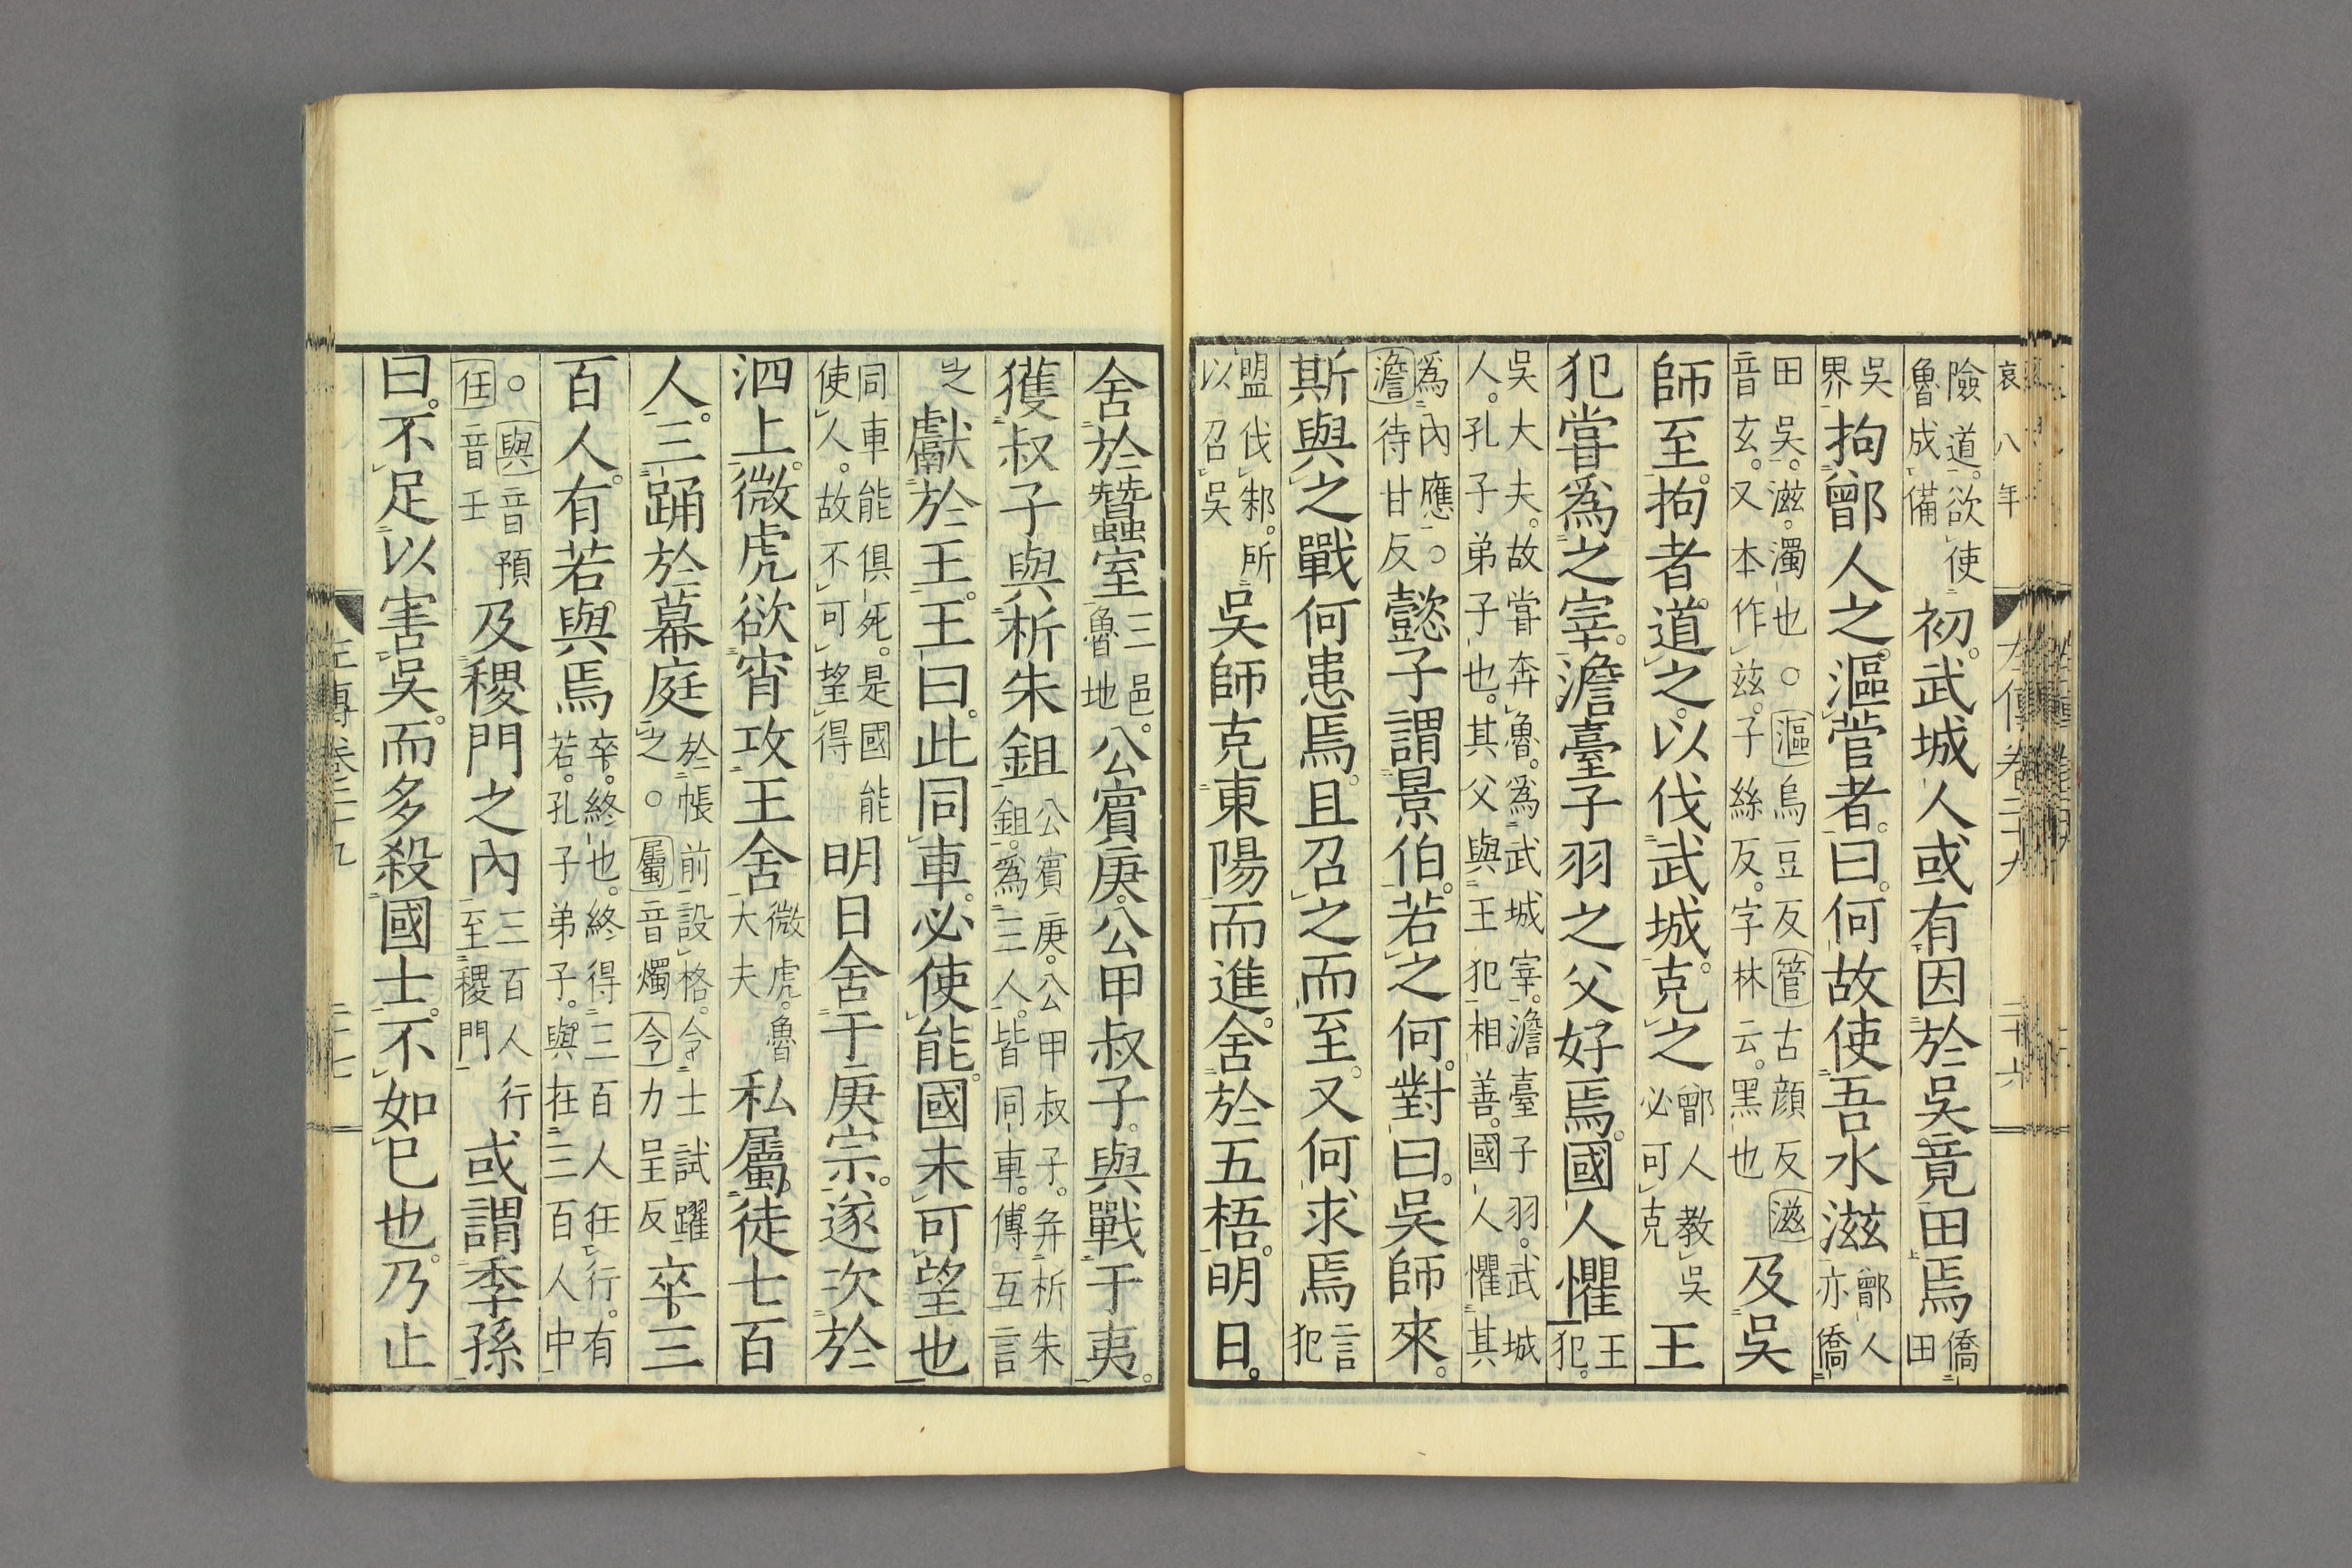 哀八年　左傳卷二十九　二十六
險道。欲使魯成備初。武城人或有因於吳竟田焉僑田
吳界拘鄫人之漚菅者。曰。何故使吾水滋鄫人亦僑
田吳。滋。濁也。○漚烏豆反管古顏反滋音玄。又本作茲。子絲反。字林云。黑也及吳
師至。拘者道之。以伐武城。克之鄫人教吳必可克王
犯嘗爲之宰。澹臺子羽之父好焉。國人懼王犯。
吳大夫。故嘗奔魯。爲武城宰。澹臺子羽。武城人。孔子弟子也。其父與王犯相善。國人懼其
爲內應。○澹待甘反懿子謂景伯。若之何。對曰。吳師來。
斯與之戰何患焉。且召之而至。又何求焉言犯
盟伐邾。所以召吳吳師克東陽而進。舍於五梧。明日。
舍於蠶室三邑。魯地公賓庚。公甲叔子。與戰于夷。
獲叔子與析朱鉏公賓庚。公甲叔子。幷析朱鉏。爲三人。皆同車。傳互言
之獻於王。王曰。此同車。必使能。國未可望也
同車能俱死。是國能使人。故不可望得明日舍于庚宗。遂次於
泗上。微虎欲宵攻王舍微虎。魯大夫私屬。徒七百
人。三踊於幕庭於帳前設格。令士試躍之。○屬音燭令力呈反卒三
百人。有若與焉卒。終也。終得三百人任行。有若。孔子弟子。與在三百人中
。○與音預任音壬及稷門之內三百人行至稷門或謂季孫
曰。不足以害吳。而多殺國士。不如已也。乃止
左傳卷二十九　二十七